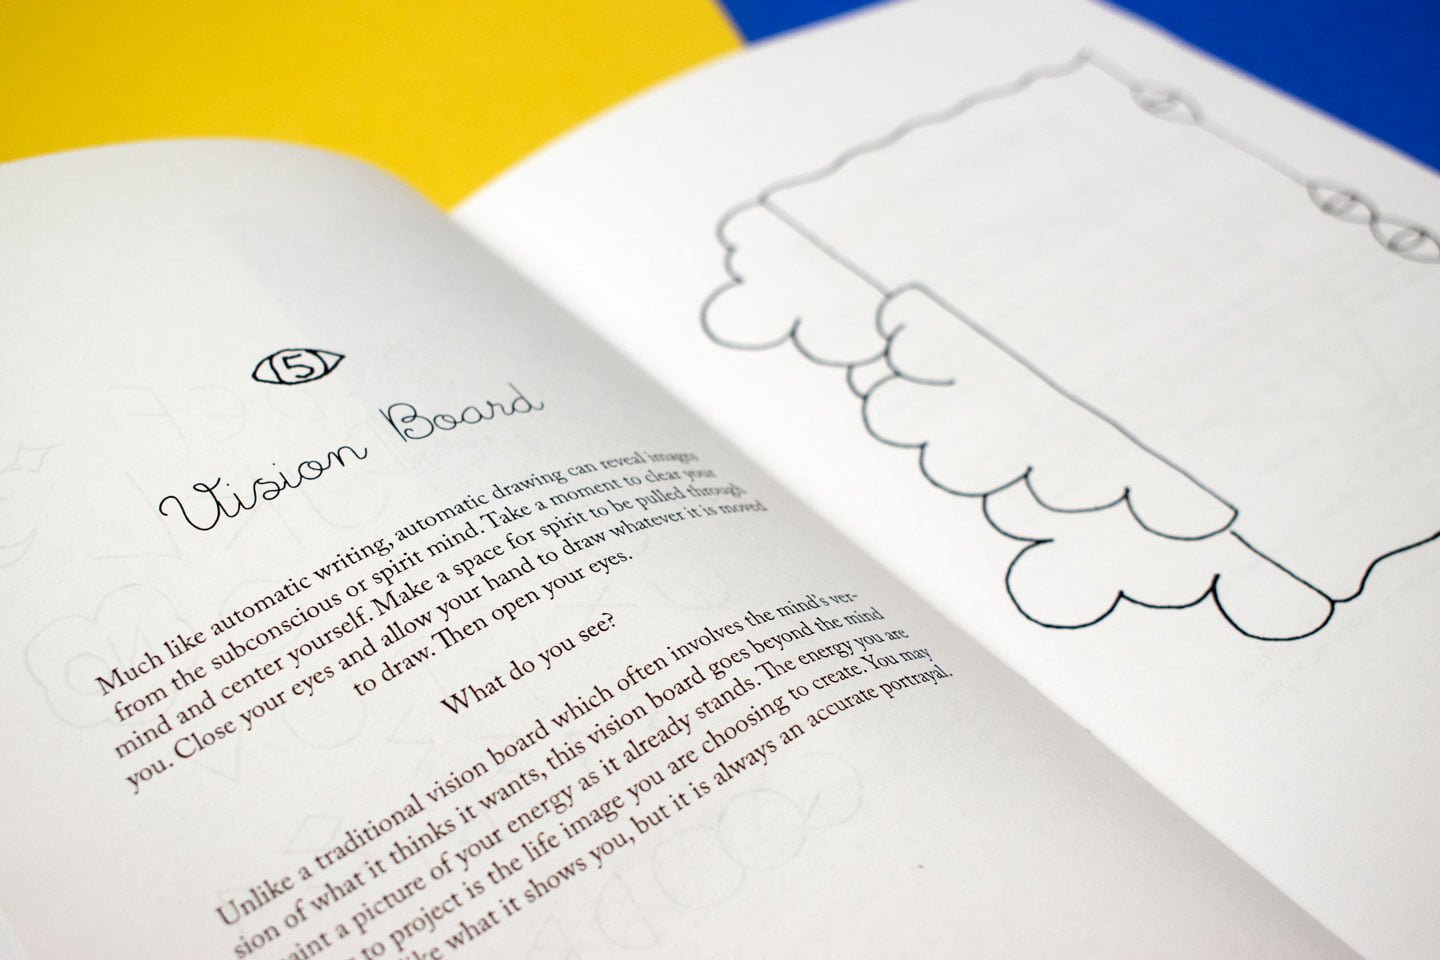 5
Vision Board
Much like automatic writing, automatic drawing can reveal images
from the subconscious or spirit mind. Take a moment to clear your
mind and center yourself. Make a space for spirit to be pulled through
you. Close your eyes and allow your hand to draw whatever it is moved
to draw. Then open your eyes.
What do you see?
Unlike a traditional vision board which often involves the mind's ver-
sion of what it thinks it wants, this vision board goes beyond the mind
a picture of your energy as it already stands. The energy you are
to project is the life image you are choosing to create. You may
what it shows you, but it is always an accurate portrayal.